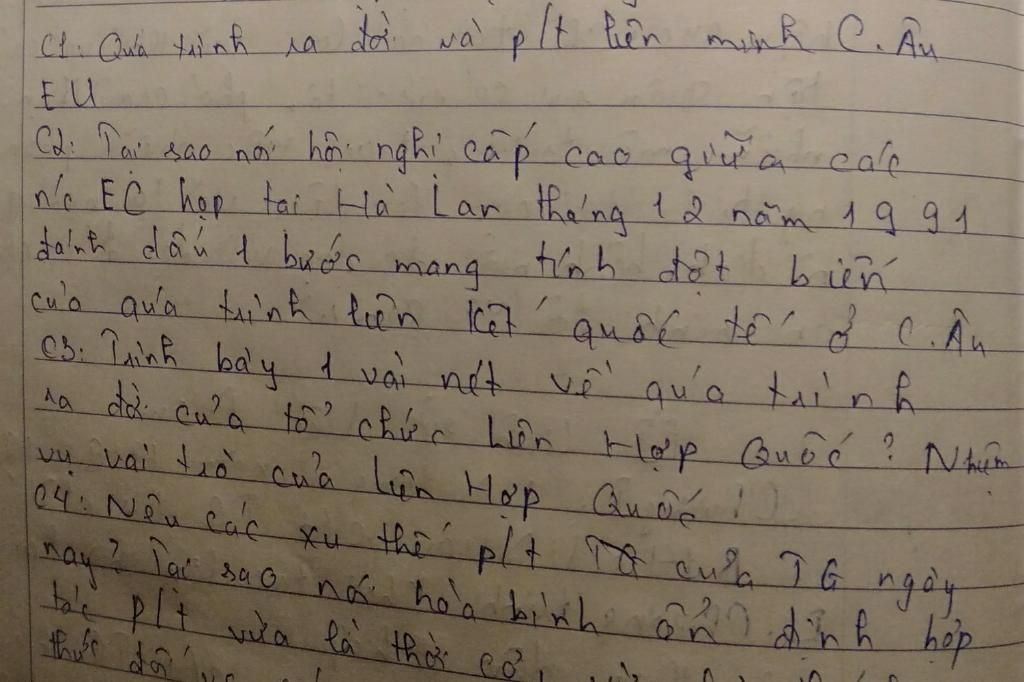 C1: Quá trình ra đời và p/t liên minh C. Âu
EU
C2: Tại sao nói hội nghị cấp cao giữa các
nc EC họp tại Hà Lan tháng 12 năm 1991
đánh dấu 1 bước mang tính đột biến
của quá trình liên kết quốc tế ở C. Âu
C3: Trình bày 1 vài nét về quá trình
ra đời của tổ chức Liên Hợp Quốc? Nhiệm
vụ vai trò của Liên Hợp Quốc!
C4: Nêu các xu thế p/t của TG ngày
nay? Tại sao nói hòa bình ổn định hợp
tác p/t vừa là thời cơ,
thức đối